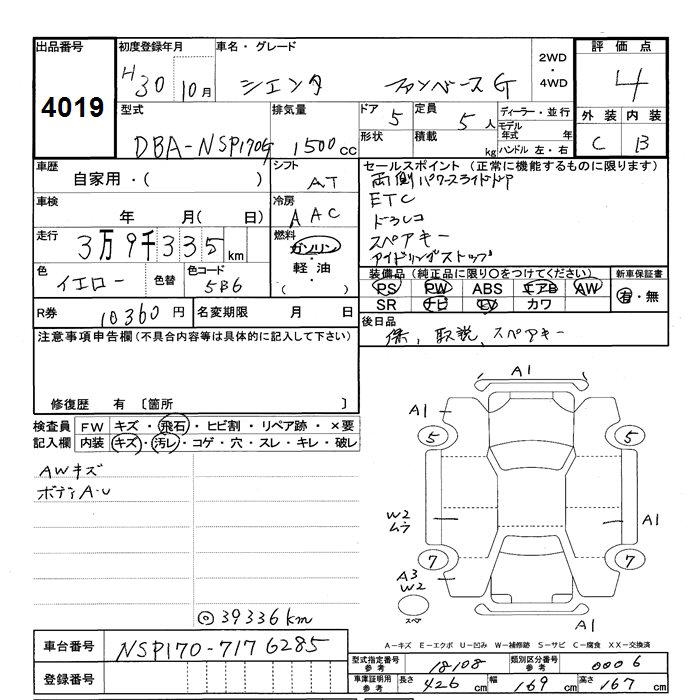 出品番号 初度登録年月 車名・グレード 2WD 評価点
4019 H30 10月 シエンタ ファンベースG ・ 4WD 4
型式 排気量 ドア 5 定員 5人 ディーラー・並行 外装 内装
DBA-NSP170G 1500cc 形状 積載 kg モデル年式 年 C B
ハンドル 左・右
車歴 シフト セールスポイント(正常に機能するものに限ります)
自家用・( ) AT 両側パワースライドドア
車検 冷房 ETC
年 月( 日) AAC ドラレコ
走行 3万9千335km 燃料 スペアキー
ガソリン・軽油・( ) アイドリングストップ
色 色替 色コード 装備品(純正品に限り○をつけてください) 新車保証書
イエロー 5B6 PS PW ABS エアB AW 有・無
SR ナビ TV カワ
R券 10360円 名変期限 月 日 後日品
注意事項申告欄(不具合内容等は具体的に記入して下さい) 保、取説、スペアキー
修復歴 有〔箇所 〕
検査員記入欄 FW キズ・飛石・ヒビ割・リペア跡・×要
内装 キズ・汚レ・コゲ・穴・スレ・キレ・破レ
AWキズ
ボディA・U
◎39336km
A1
A1
5 5
W2
ムラ
A1
7 7
A3
W2
スペア
A1
A-キズ E-エクボ U-凹み W-補修跡 S-サビ C-腐食 XX-交換済
車台番号 NSP170-7176285
型式指定番号 参考 18108 類別区分番号 参考 0006
登録番号 車庫証明用 参考 長さ 426cm 幅 169cm 高さ 167cm